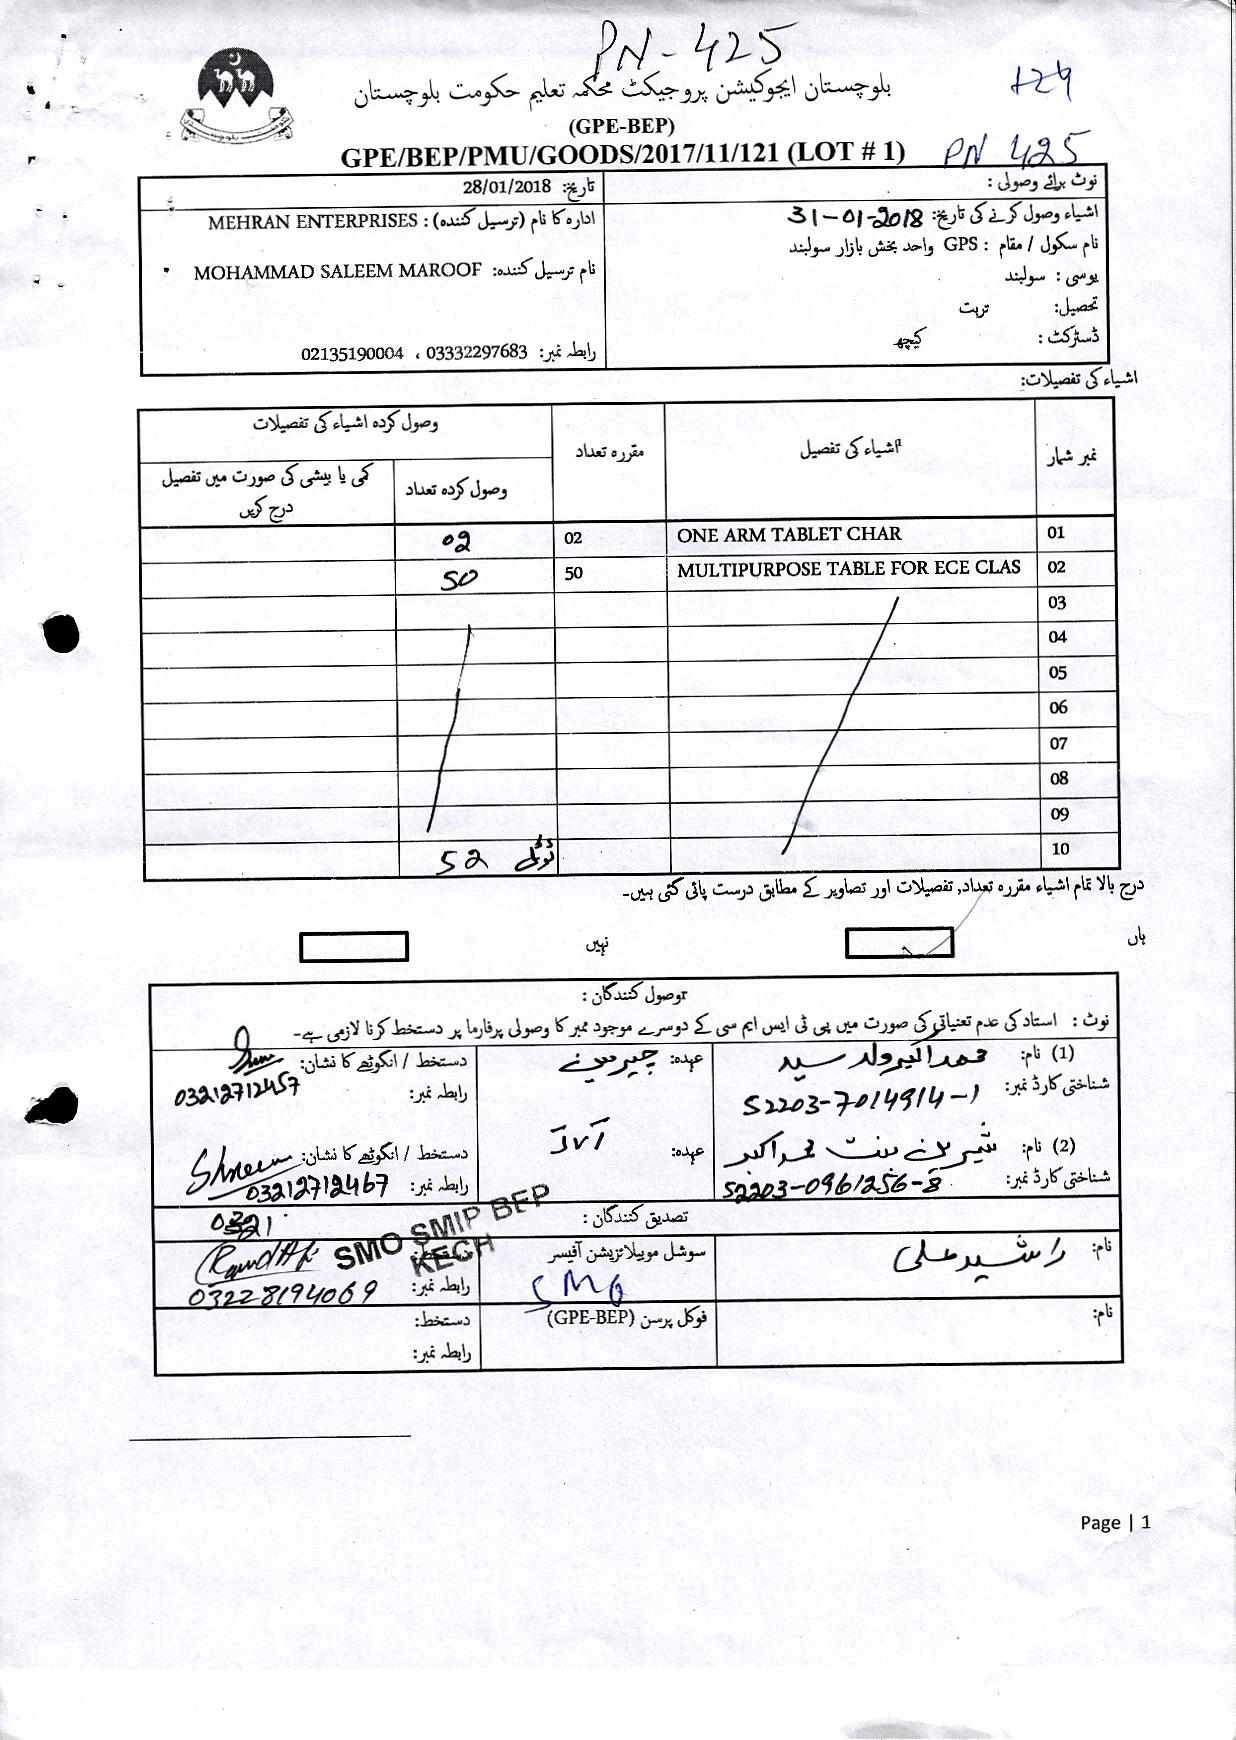 PN-425
بلوچستان ایجوکیشن پروجیکٹ محکمہ تعلیم حکومت بلوچستان
(GPE-BEP)
GPE/BEP/PMU/GOODS/2017/11/121 (LOT # 1)
PN 425
نوٹ برائے وصولی :
تاریخ: 28/01/2018
اشیاء وصول کرنے کی تاریخ: 31-01-2018
ادارہ کا نام (ترسیل کنندہ) : MEHRAN ENTERPRISES
نام سکول / مقام : GPS واحد بخش بازار سولبند
نام ترسیل کنندہ: MOHAMMAD SALEEM MAROOF
یوسی : سولبند
تحصیل: تربت
ڈسٹرکٹ : کیچھ
رابطہ نمبر: 03332297683 ، 02135190004
اشیاء کی تفصیلات:
نمبر شمار
اشیاء کی تفصیل
مقررہ تعداد
وصول کردہ اشیاء کی تفصیلات
وصول کردہ تعداد
کمی یا بیشی کی صورت میں تفصیل درج کریں
01 ONE ARM TABLET CHAR 02 02
02 MULTIPURPOSE TABLE FOR ECE CLAS 50 50
03
04
05
06
07
08
09
10 ٹوٹل 52
درج بالا تمام اشیاء مقررہ تعداد, تفصیلات اور تصاویر کے مطابق درست پائی گئی ہیں۔
ہاں نہیں
وصول کنندگان :
نوٹ : استاد کی عدم تعیناتی کی صورت میں پی ٹی ایس ایم سی کے دوسرے موجود ممبر کا وصولی پرفارما پر دستخط کرنا لازمی ہے۔
(1) نام: محمد اکبر ولد سید عہدہ: چیرمین دستخط / انگوٹھے کا نشان:
شناختی کارڈ نمبر: 52203-7014914-1 رابطہ نمبر: 03212712457
(2) نام: شیرین بنت محمد اکبر عہدہ: J.V.T دستخط / انگوٹھے کا نشان: Shreen
شناختی کارڈ نمبر: 52203-0961256-8 رابطہ نمبر: 03212712467
تصدیق کنندگان : 0321
نام: راشید علی سوشل موبیلائزیشن آفیسر SMO دستخط:
SMO SMIP BEP
KECH
رابطہ نمبر: 03228194069
نام: فوکل پرسن (GPE-BEP) دستخط:
رابطہ نمبر:
Page | 1